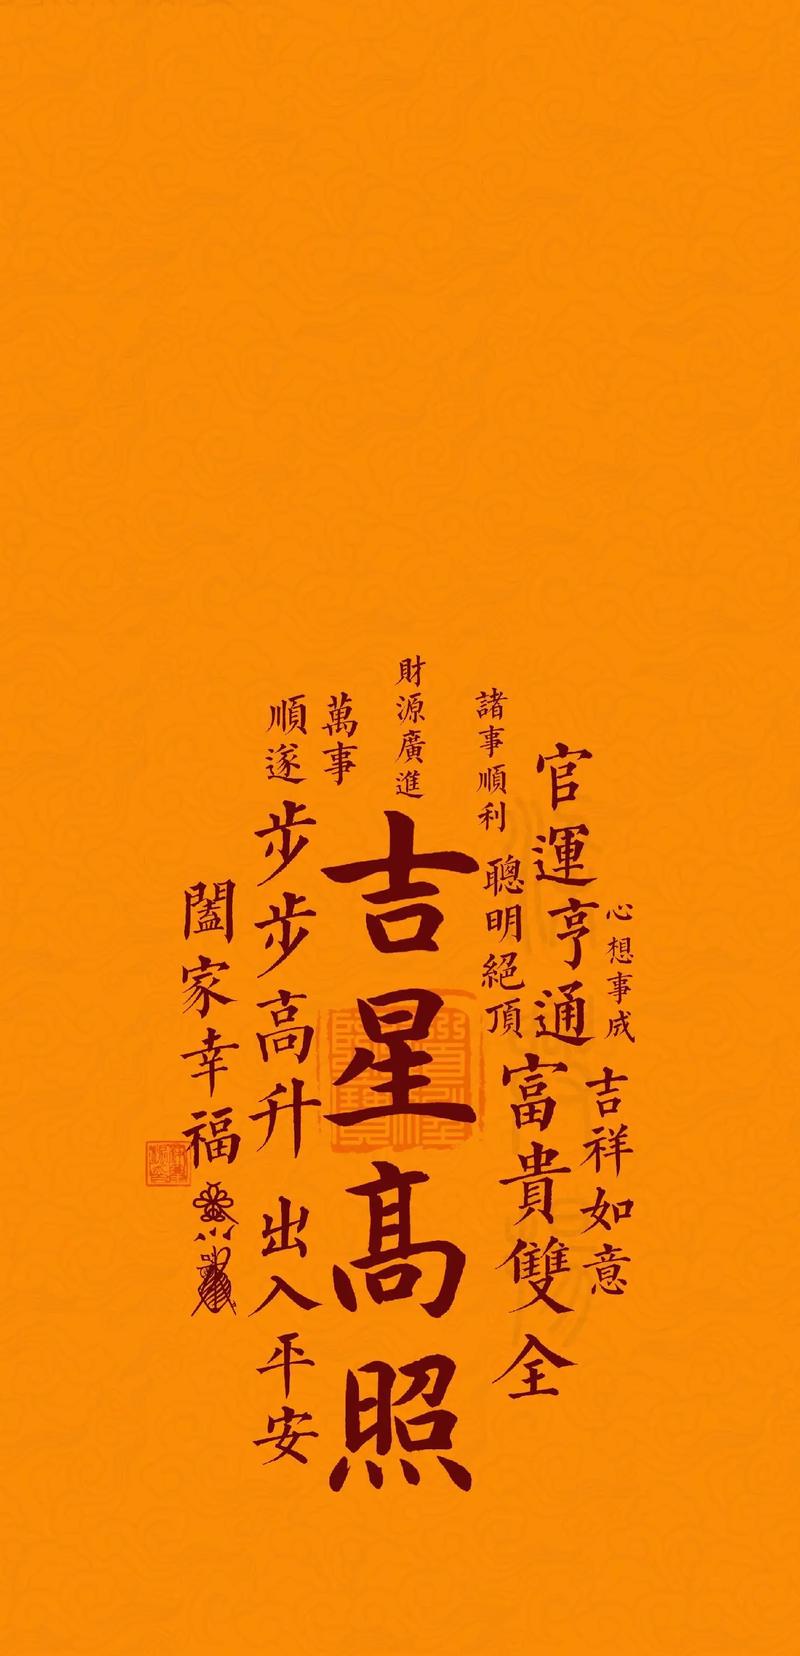 心想事成
吉祥如意
官運亨通
富貴雙全
諸事順利
聰明絕頂
財源廣進
吉星高照
萬事
順遂
步步高升
出入平安
闔家幸福